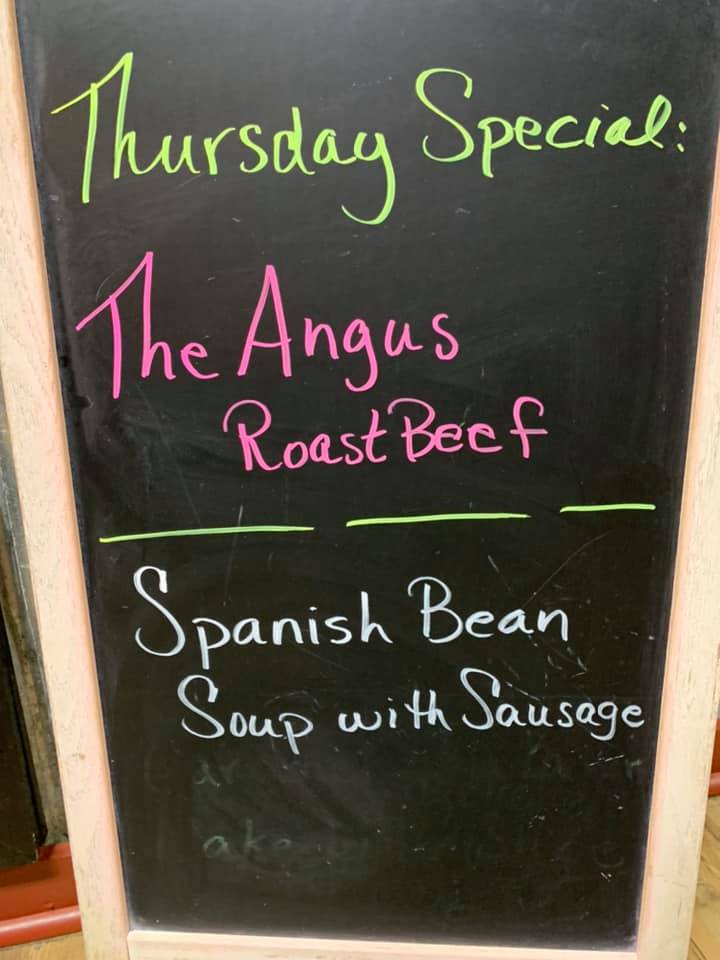 Thursday Special:
The Angus
Roast Beef
Spanish Bean
Soup with Sausage